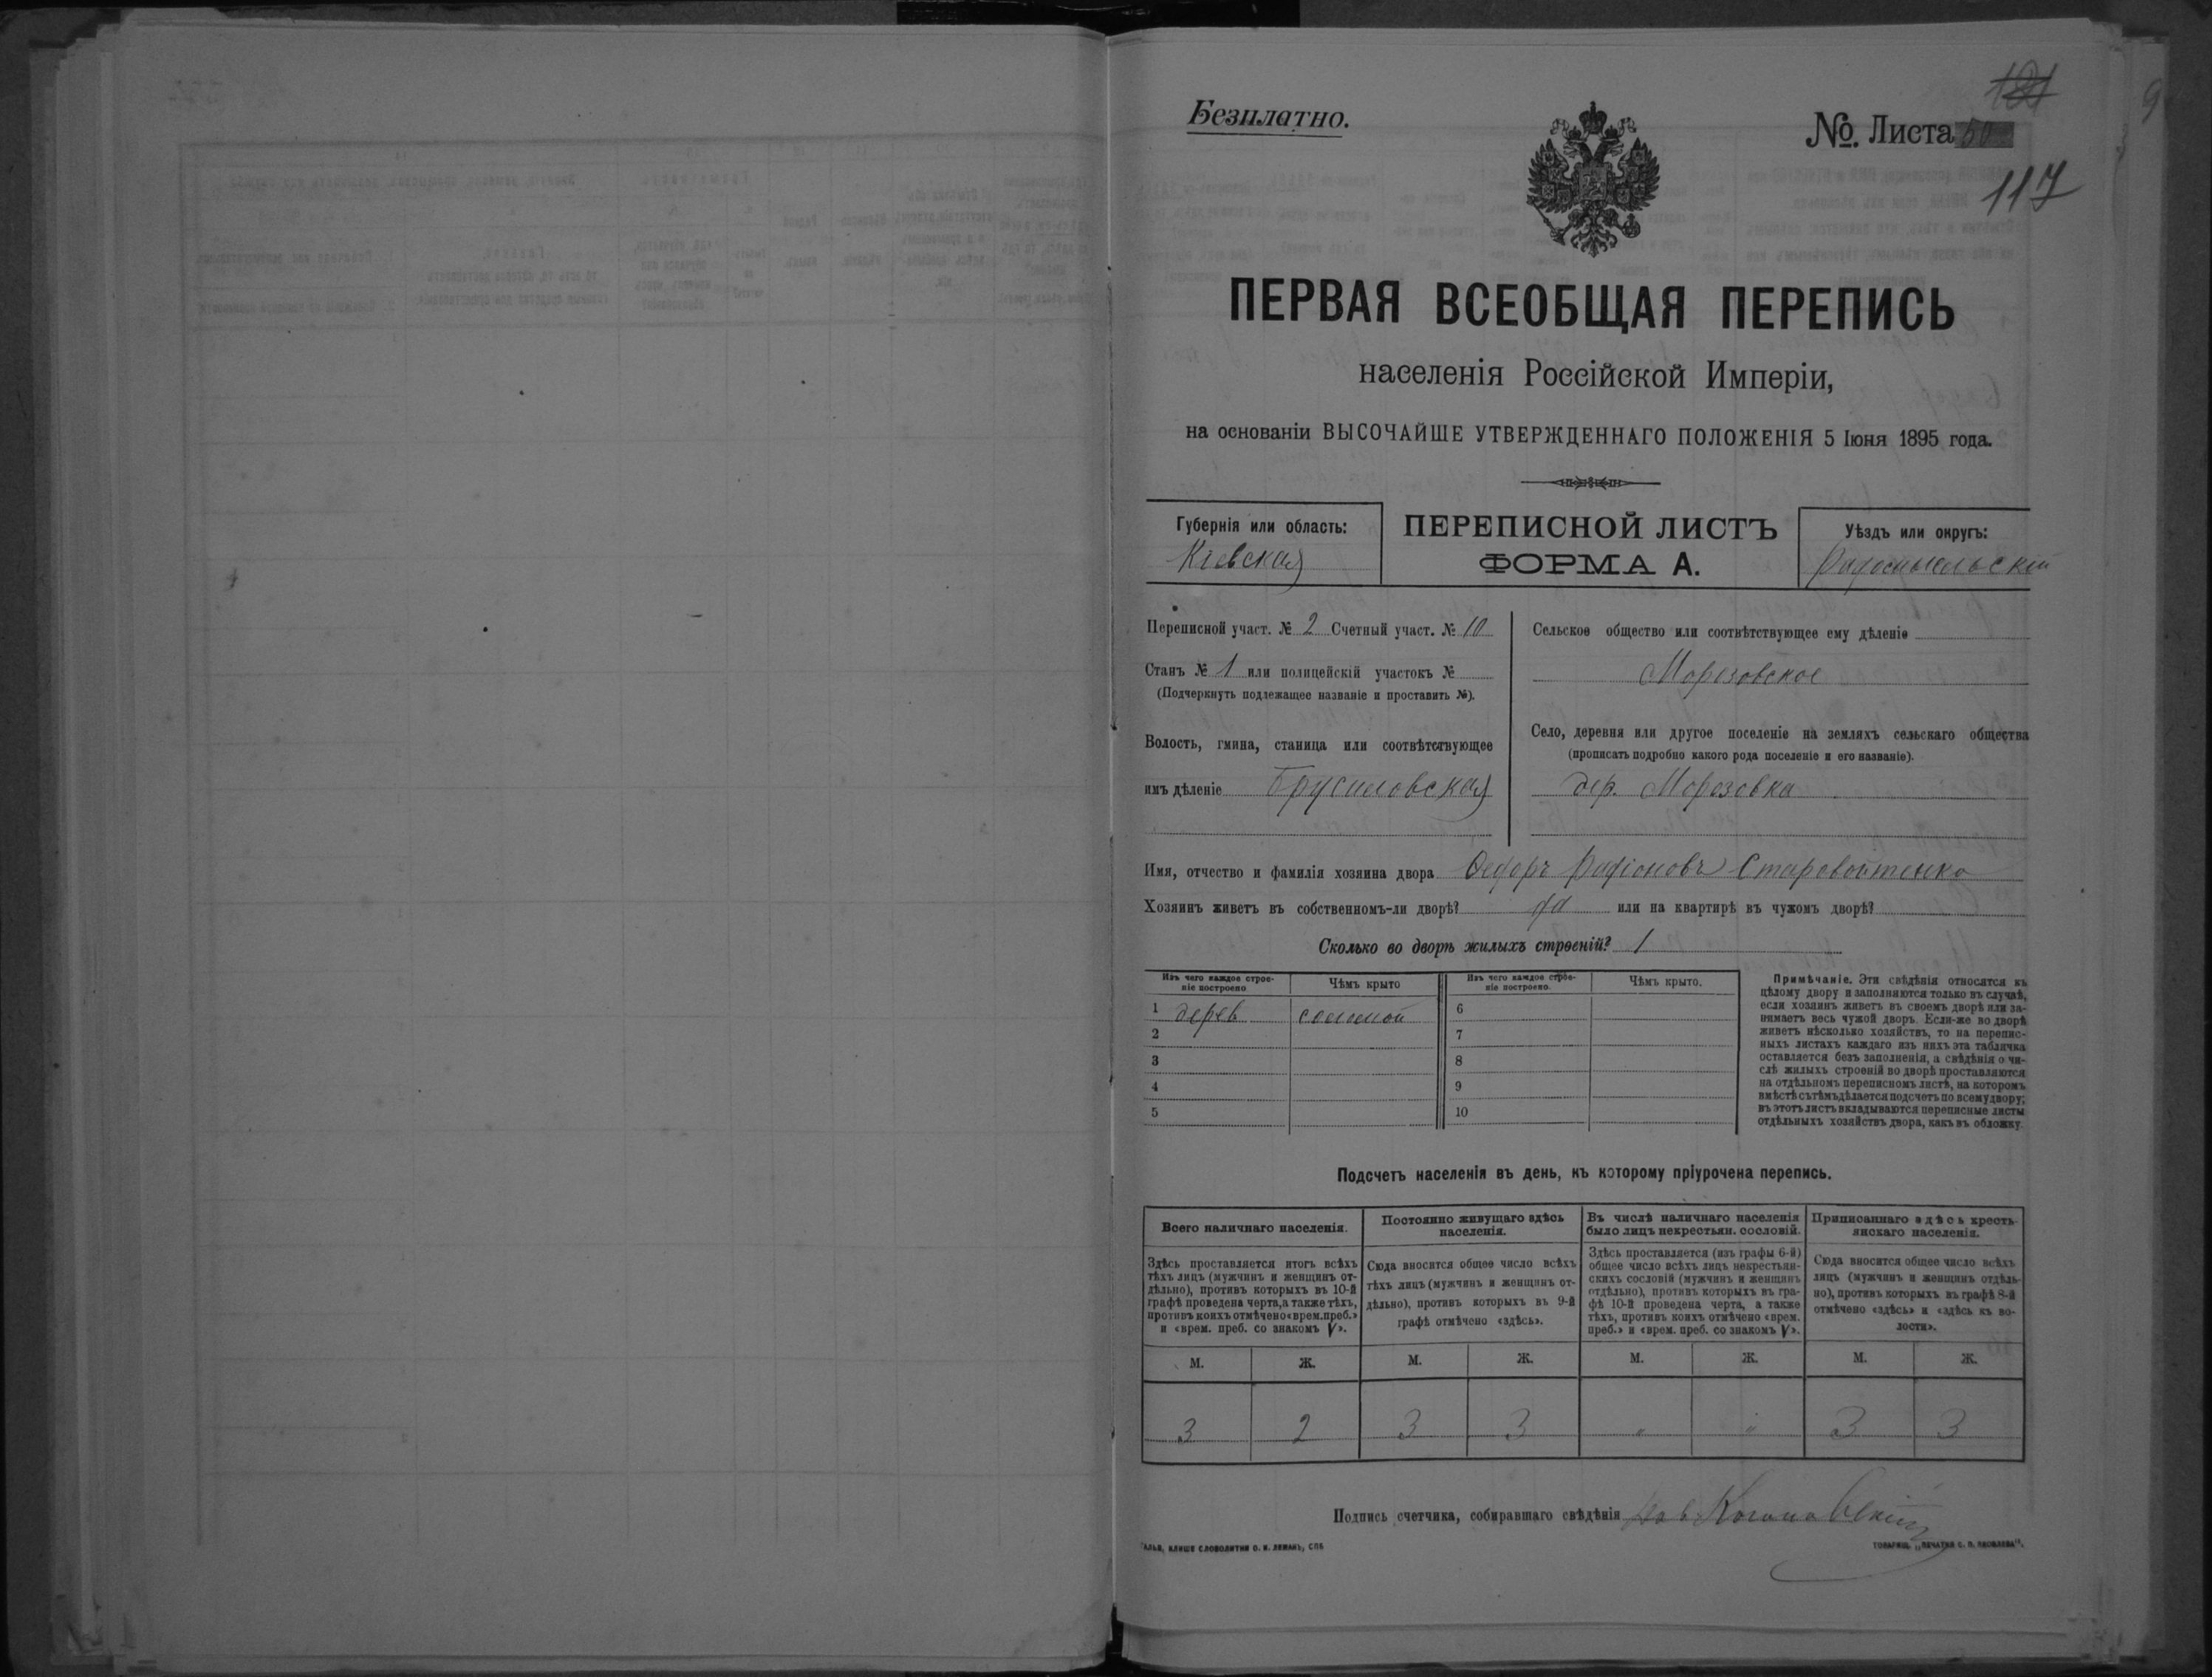 Безплатно.
№. Листа 50
117
ПЕРВАЯ ВСЕОБЩАЯ ПЕРЕПИСЬ
населенія Россійской Имперіи,
на основаніи ВЫСОЧАЙШЕ УТВЕРЖДЕННАГО ПОЛОЖЕНІЯ 5 Іюня 1895 года.
Губернія или область:
Кіевская
ПЕРЕПИСНОЙ ЛИСТЪ
ФОРМА А.
Уѣздъ или округъ:
Радомысльскій
Переписной участ. № 2 Счетный участ. № 10
Станъ № 1 или полицейскій участокъ №
(Подчеркнуть подлежащее названіе и проставить №).
Волость, гмина, станица или соотвѣтствующее
имъ дѣленіе Брусиловская
Сельское общество или соотвѣтствующее ему дѣленіе
Морозовское
Село, деревня или другое поселеніе на земляхъ сельскаго общества
(прописать подробно какого рода поселеніе и его названіе).
дер. Морозовка
Имя, отчество и фамилія хозяина двора Федоръ Радіоновъ Старовойтенко
Хозяинъ живетъ въ собственномъ-ли дворѣ? да или на квартирѣ въ чужомъ дворѣ?
Сколько во дворѣ жилыхъ строеній? 1
Изъ чего каждое строе-
ніе построено
Чѣмъ крыто
Изъ чего каждое строе-
ніе построено.
Чѣмъ крыто.
1 дерев соломой 6
2 7
3 8
4 9
5 10
Примѣчаніе. Эти свѣдѣнія относятся къ
цѣлому двору и заполняются только въ случаѣ,
если хозяинъ живетъ въ своемъ дворѣ или за-
нимаетъ весь чужой дворъ. Если-же во дворѣ
живетъ нѣсколько хозяйствъ, то на перепис-
ныхъ листахъ каждаго изъ нихъ эта табличка
оставляется безъ заполненія, а свѣдѣнія о чи-
слѣ жилыхъ строеній во дворѣ проставляются
на отдѣльномъ переписномъ листѣ, на которомъ
вмѣстѣ съ тѣмъ дѣлается подсчетъ по всему двору;
въ этотъ листъ вкладываются переписные листы
отдѣльныхъ хозяйствъ двора, какъ въ обложку.
Подсчетъ населенія въ день, къ которому пріурочена перепись.
Всего наличнаго населенія.
Здѣсь проставляется итогъ всѣхъ
тѣхъ лицъ (мужчинъ и женщинъ от-
дѣльно), противъ которыхъ въ 10-й
графѣ проведена черта, а также тѣхъ,
противъ коихъ отмѣчено «врем. преб.»
и «врем. преб. со знакомъ V».
Постоянно живущаго здѣсь
населенія.
Сюда вносится общее число всѣхъ
тѣхъ лицъ (мужчинъ и женщинъ от-
дѣльно), противъ которыхъ въ 9-й
графѣ отмѣчено «здѣсь».
Въ числѣ наличнаго населенія
было лицъ некрестьян. сословій.
Здѣсь проставляется (изъ графы 6-й)
общее число всѣхъ лицъ некрестьян-
скихъ сословій (мужчинъ и женщинъ
отдѣльно), противъ которыхъ въ гра-
фѣ 10-й проведена черта, а также
тѣхъ, противъ коихъ отмѣчено «врем.
преб.» и «врем. преб. со знакомъ V».
Приписаннаго здѣсь кресть-
янскаго населенія.
Сюда вносится общее число всѣхъ
лицъ (мужчинъ и женщинъ отдѣль-
но), противъ которыхъ въ графѣ 8-й
отмѣчено «здѣсь» и «здѣсь къ во-
лости».
М. Ж. М. Ж. М. Ж. М. Ж.
3 2 3 3 " " 3 3
Подпись счетчика, собиравшаго свѣдѣнія
ТОВАРИЩ. „ПЕЧАТНЯ С. П. ЯКОВЛЕВА".